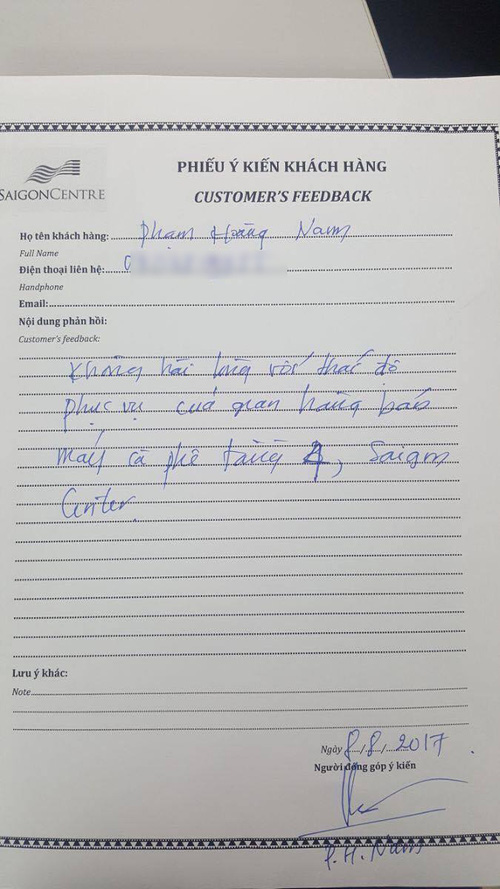 SAIGONCENTRE
PHIẾU Ý KIẾN KHÁCH HÀNG
CUSTOMER'S FEEDBACK
Họ tên khách hàng: Phạm Hoàng Nam
Full Name
Điện thoại liên hệ: 0
Handphone
Email:
Nội dung phản hồi:
Customer's feedback:
Không hài lòng với thái độ
phục vụ của gian hàng bán
máy cà phê tầng 4, Saigon
Center
Lưu ý khác:
Note
Ngày 8/8/2017
Người đóng góp ý kiến
P.H. Nam